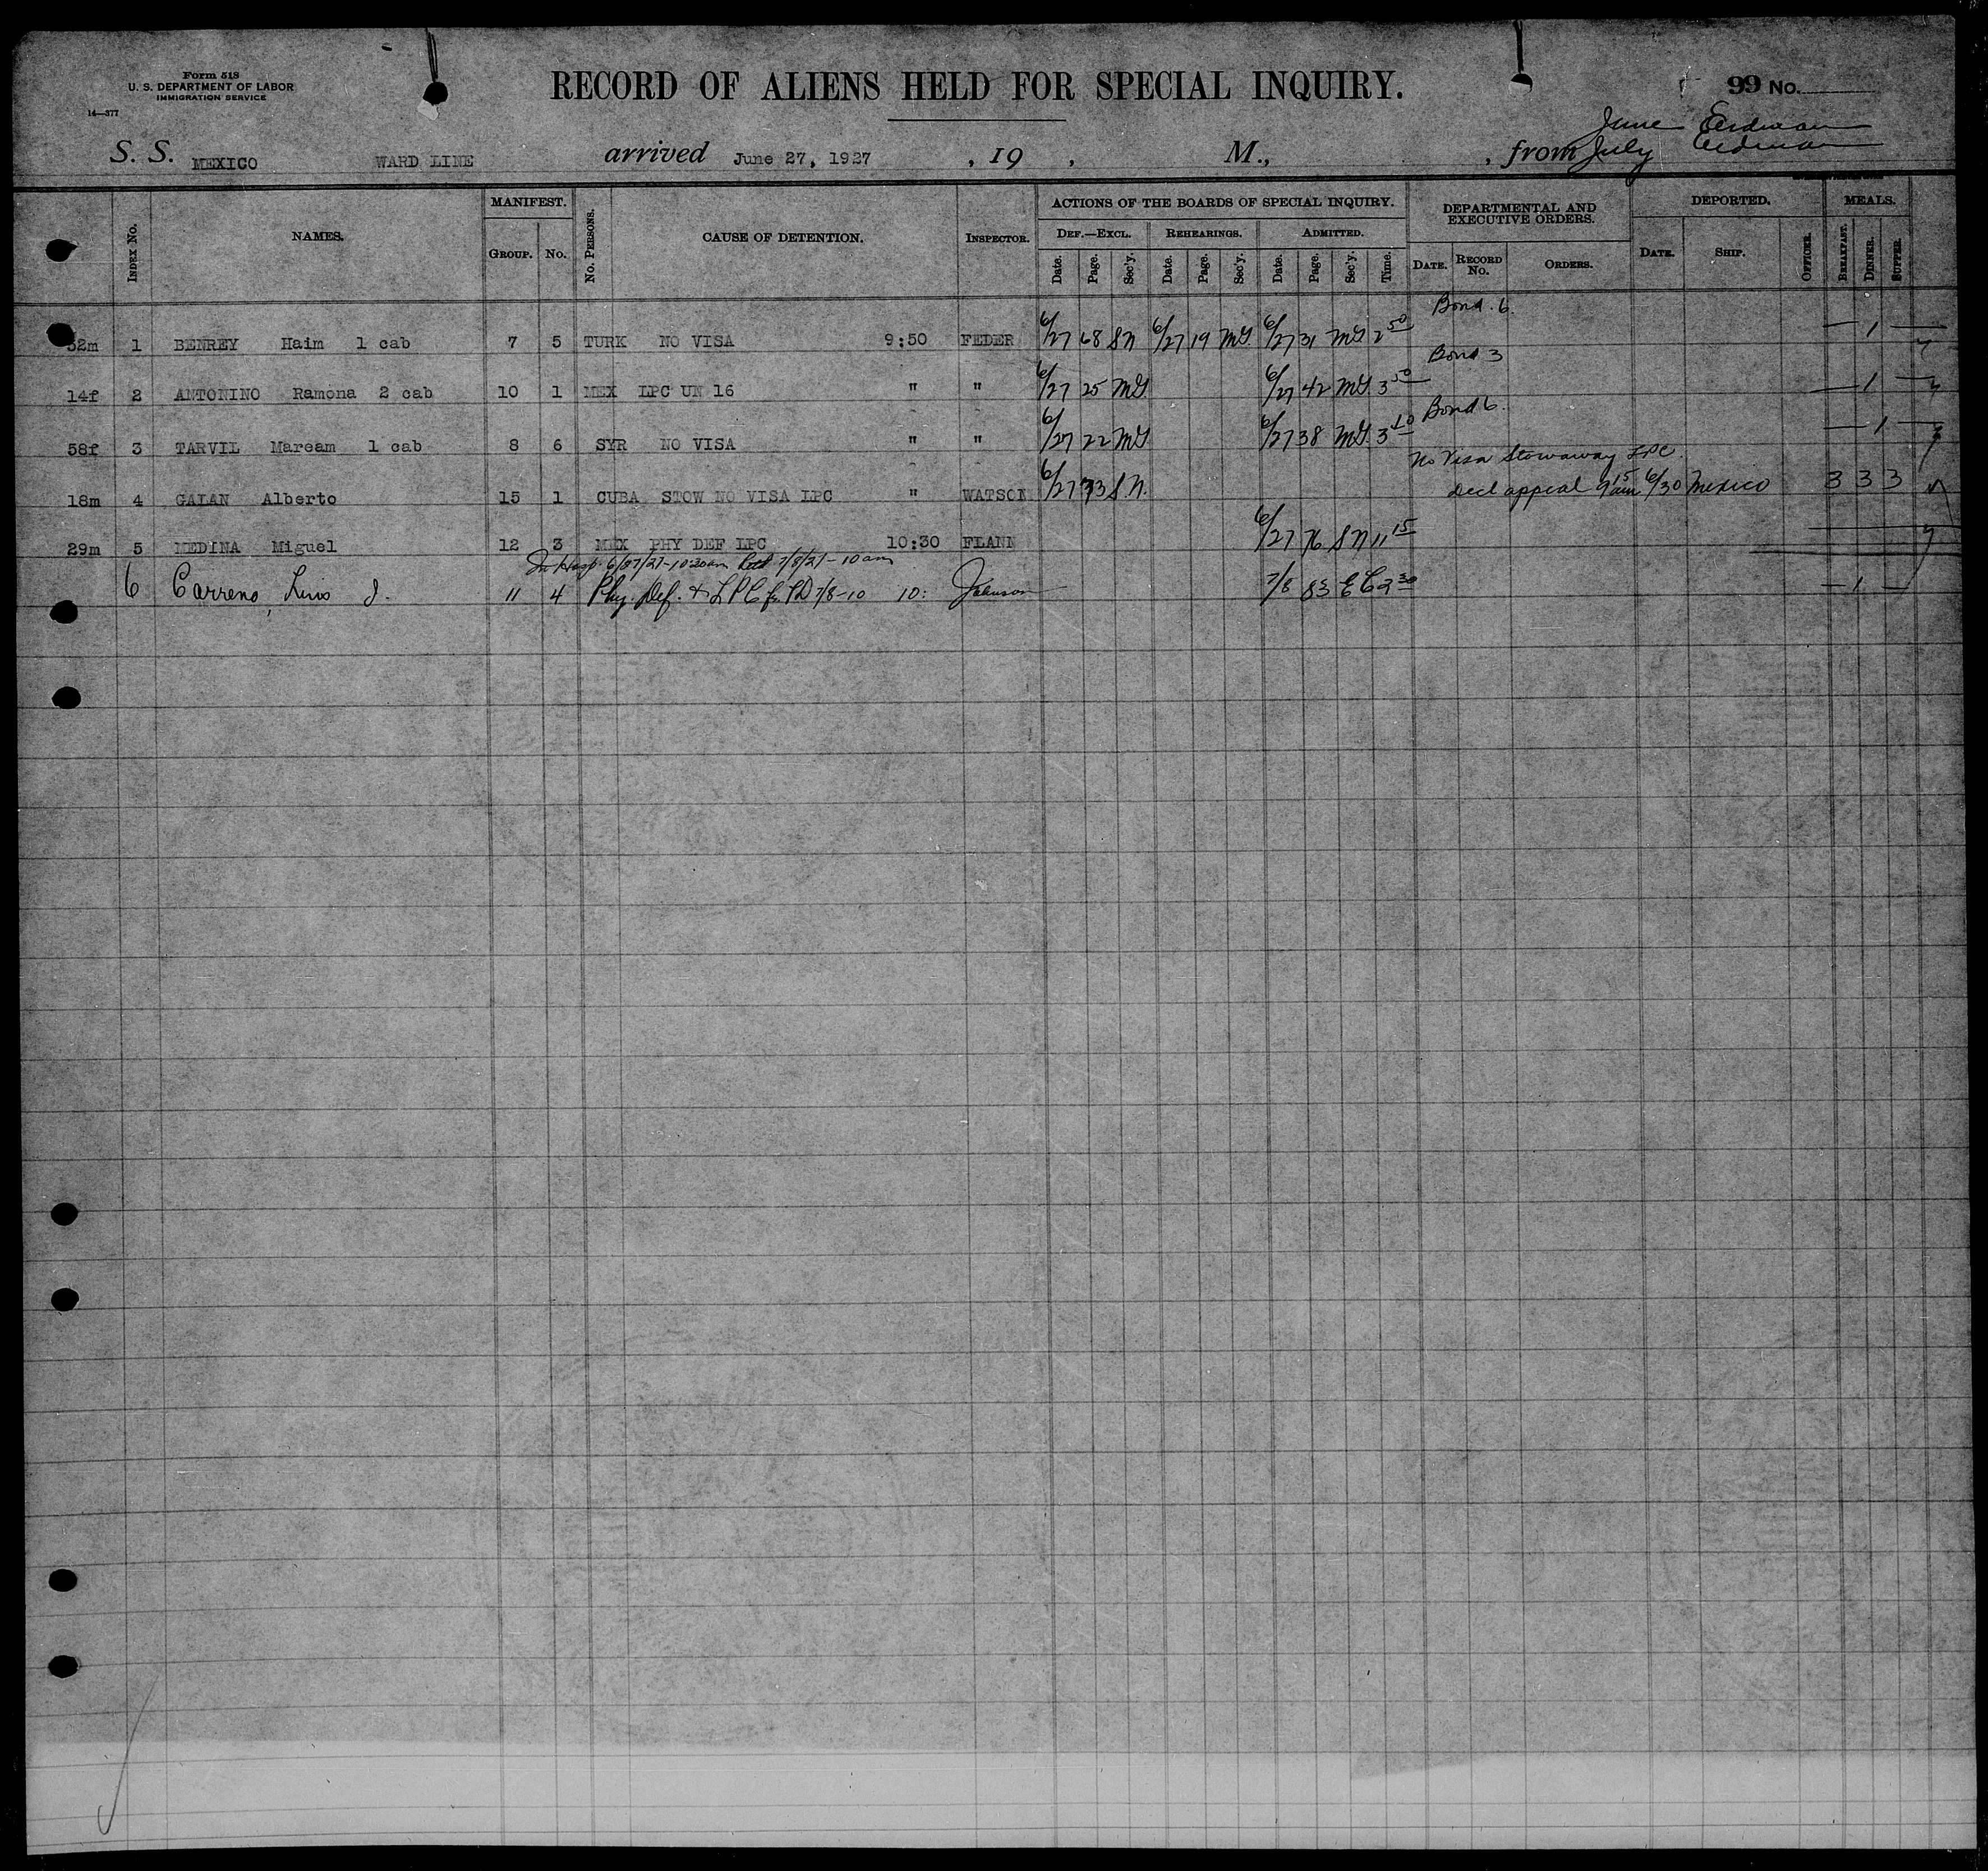 Form 518
U. S. DEPARTMENT OF LABOR
IMMIGRATION SERVICE
14—377
RECORD OF ALIENS HELD FOR SPECIAL INQUIRY.
99 No.
June Erdman
S. S. MEXICO WARD LINE arrived June 27, 1927 , 19 , M., , from July Erdman
Index No. NAMES. MANIFEST. GROUP. No. No. PERSONS. CAUSE OF DETENTION. INSPECTOR. ACTIONS OF THE BOARDS OF SPECIAL INQUIRY. DEF.—EXCL. Date. Page. Sec'y. REHEARINGS. Date. Page. Sec'y. ADMITTED. Date. Page. Sec'y. Time. DEPARTMENTAL AND EXECUTIVE ORDERS. DATE. RECORD No. ORDERS. DEPORTED. DATE. SHIP. OFFICER. MEALS. BREAKFAST. DINNER. SUPPER.
Bond. 6.
52m 1 BENREY Haim 1 cab 7 5 TURK NO VISA 9:50 FEDER 6/27 68 SN 6/27 19 MG 6/27 31 MG 2 50 — 1 —
Bond 3
14f 2 ANTONINO Ramona 2 cab 10 1 MEX LPC UN 16 " " 6/27 25 MG 6/27 42 MG 3 50 — 1 —
Bond 6.
58f 3 TARVIL Maream 1 cab 8 6 SYR NO VISA " " 6/27 22 MG 6/27 38 MG 3 40 — 1 —
No Visa Stowaway LPC.
18m 4 GALAN Alberto 15 1 CUBA STOW NO VISA LPC " WATSON 6/27 73 SN. Decl appeal 9 15 am 6/30 Mexico 3 3 3
29m 5 MEDINA Miguel 12 3 MEX PHY DEF LPC 10:30 FLANN 6/27 76 SN 11 15
In Hosp. 6/27/27-10:30am 7/8/27-10am
6 Carreno, Luis J. 11 4 Phy. Def. & LPC 7/8-10 10: Johnson 7/8 83 EC 2 30 — 1 —